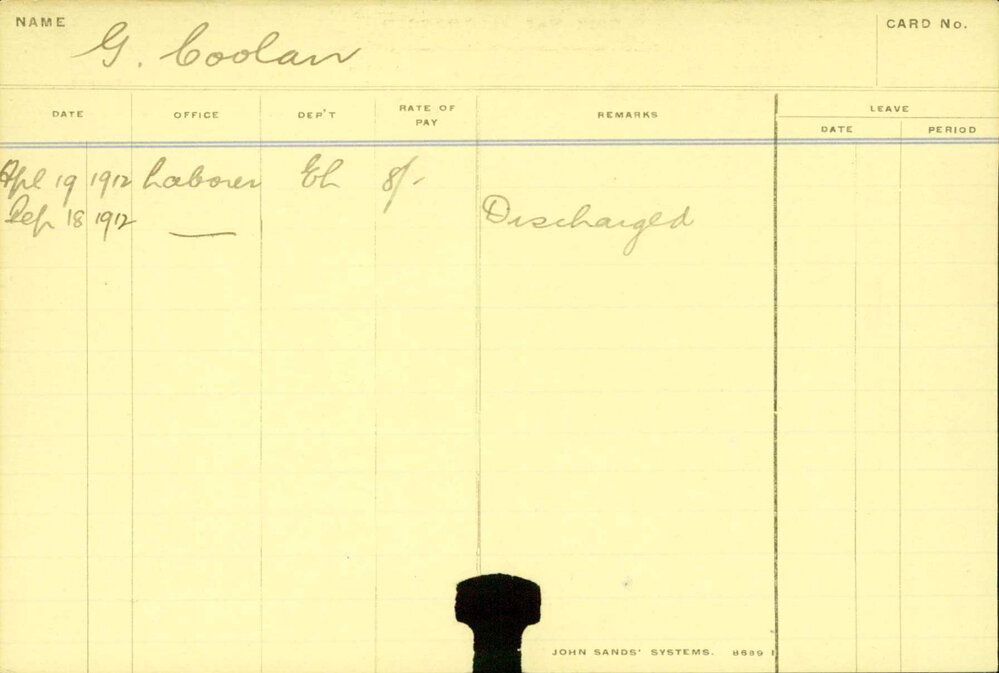 NAME G. Coolan CARD No.
DATE OFFICE DEP'T RATE OF PAY REMARKS LEAVE
DATE PERIOD
Apl 19 1912 Laborer 8/-
Sep 18 1912 — Discharged
JOHN SANDS' SYSTEMS. 8689